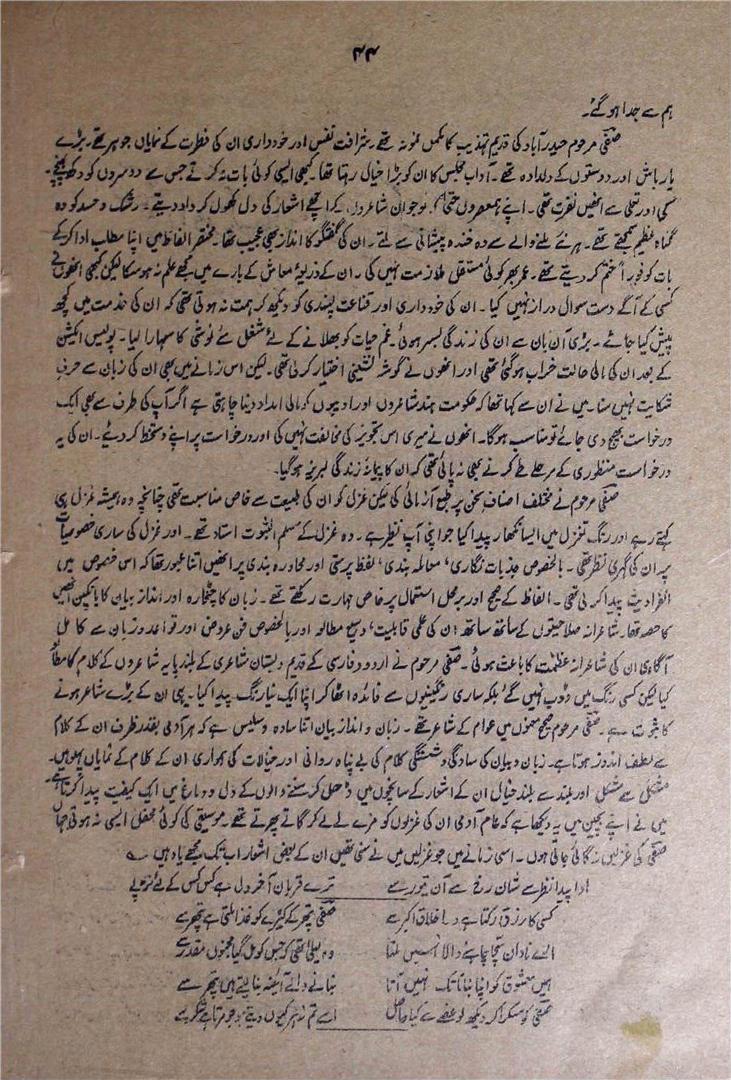 ۴۴
ہم سے جدا ہو گئے۔
صفی مرحوم حیدرآباد کی قدیم تہذیب کا مکمل نمونہ تھے۔ شرافت نفس اور خودداری ان کی فطرت کے نمایاں جوہر تھے۔ بڑے
یار باش اور دوستوں کے دلدادہ تھے۔ آداب مجلس کا ان کو بڑا خیال رہتا تھا۔ کبھی ایسی کوئی بات نہ کرتے جس سے دوسروں کو دکھ پہنچے۔
اور تعلی سے انھیں نفرت تھی۔ اپنے ہمعصروں حتیٰ کہ نوجوان شاعروں کے اچھے اشعار کی دل کھول کر داد دیتے۔ رشک و حسد کو وہ
گناہ عظیم سمجھتے تھے۔ ہر نئے ملنے والے سے وہ خندہ پیشانی سے ملتے۔ ان کی گفتگو کا انداز بھی عجیب تھا۔ مختصر الفاظ میں اپنا مطلب ادا کر کے
بات کو فوراً ختم کر دیتے تھے۔ عمر بھر کوئی مستقل ملازمت نہیں کی۔ ان کے ذریعۂ معاش کے بارے میں مجھے علم نہ ہو سکا لیکن کبھی انھوں نے
کسی کے آگے دست سوال دراز نہیں کیا۔ ان کی خودداری اور قناعت پسندی کو دیکھ کر ہمت نہ ہوتی تھی کہ ان کی خدمت میں کچھ
پیش کیا جائے۔ بڑی آن بان سے ان کی زندگی بسر ہوئی۔ غم حیات کو بھلانے کے لئے شغل مئے نوشی کا سہارا لیا۔ پولیس ایکشن
کے بعد ان کی مالی حالت خراب ہو گئی تھی اور انھوں نے گوشہ نشینی اختیار کر لی تھی۔ لیکن اس زمانے میں بھی ان کی زبان سے حرف
شکایت نہیں سنا۔ میں نے ان سے کہا تھا کہ حکومت ہند شاعروں اور ادیبوں کو مالی امداد دینا چاہتی ہے اگر آپ کی طرف سے بھی ایک
درخواست بھیج دی جائے تو مناسب ہوگا۔ انھوں نے میری اس تجویز کی مخالفت نہیں کی اور درخواست پر اپنے دستخط کر دیئے۔ ان کی یہ
درخواست منظوری کے مرحلے طے کرنے بھی نہ پائی تھی کہ ان کا پیمانۂ زندگی لبریز ہو گیا۔
صفی مرحوم نے مختلف اصناف سخن پر طبع آزمائی کی لیکن غزل کو ان کی طبیعت سے خاص مناسبت تھی چنانچہ وہ ہمیشہ غزل ہی
کہتے رہے اور رنگ تغزل میں ایسا نکھار پیدا کیا جو اپنی آپ نظیر ہے۔ وہ غزل کے مسلم الثبوت استاد تھے۔ اور غزل کی ساری خصوصیات
پر ان کی گہری نظر تھی۔ بالخصوص جذبات نگاری، معاملہ بندی، لفظ پرستی اور محاورہ بندی پر انھیں اتنا عبور تھا کہ اس خصوص میں
انفرادیت پیدا کر لی تھی۔ الفاظ کے صحیح اور برمحل استعمال پر خاص مہارت رکھتے تھے۔ زبان کا چٹخارہ اور انداز بیان کا بانکپن انھیں
کا حصہ تھا۔ شاعرانہ صلاحیتوں کے ساتھ ساتھ ان کی علمی قابلیت، وسیع مطالعہ اور بالخصوص فن عروض اور قواعد و زبان سے کامل
آگاہی ان کی شاعرانہ عظمت کا باعث ہوئی۔ صفی مرحوم نے اردو و فارسی کے قدیم دبستان شاعری کے بلند پایہ شاعروں کے کلام کا مطالعہ
کیا لیکن کسی رنگ میں ڈوب نہیں گئے بلکہ ساری رنگینیوں سے فائدہ اٹھا کر اپنا ایک نیا رنگ پیدا کیا۔ یہی ان کے بڑے شاعر ہونے
کا ثبوت ہے۔ صفی مرحوم صحیح معنوں میں عوام کے شاعر تھے۔ زبان و انداز بیان اتنا سادہ و سلیس ہے کہ ہر آدمی بقدر ظرف ان کے کلام
سے لطف اندوز ہوتا ہے۔ زبان و بیان کی سادگی و شستگی کلام کی بے پناہ روانی اور خیالات کی ہمواری ان کے کلام کے نمایاں پہلو ہیں۔
مشکل سے مشکل اور بلند سے بلند خیال ان کے اشعار کے سانچوں میں ڈھل کر سننے والوں کے دل و دماغ میں ایک کیفیت پیدا کرتا ہے۔
میں نے اپنے بچپن میں یہ دیکھا ہے کہ عام آدمی ان کی غزلوں کو مزے لے لے کر گاتے پھرتے تھے۔ موسیقی کی کوئی محفل ایسی نہ ہوتی جہاں
صفی کی غزلیں نہ گائی جاتی ہوں۔ اسی زمانے میں جو غزلیں میں نے سنی تھیں ان کے بعض اشعار اب تک مجھے یاد ہیں
ادا پیدا نظر سے شان رخ سے آن تیور سے ترے قربان آخر دل ہے کس کس کے لئے تڑپے
کسی کا رزق رکتا ہے در اخلاق اکبر سے صفی پتھر کے کیڑے کو غذا ملتی ہے پتھر سے
ارے نادان سچا چاہنے والا نہیں ملتا وہ لیلیٰ تھی کہ جس کو مل گیا مجنوں مقدر سے
ہمیں معشوق کو اپنا بنانا تک نہیں آتا بنانے والے آئینہ بنا لیتے ہیں پتھر سے
صفی کو مسکرا کر دیکھ لو غصے سے کیا حاصل اسے تم زہر کیوں دیتے ہو جو مرتا ہے شکر سے